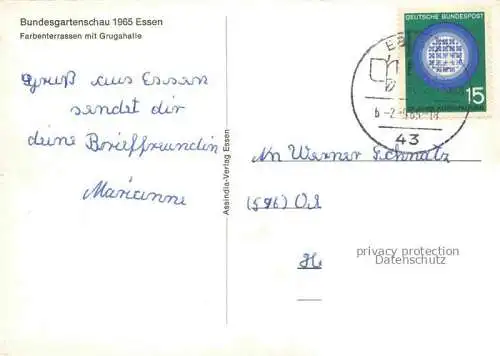 Bundesgartenschau 1965 Essen
Farbenterrassen mit Grugahalle
Gruß aus Essen
sendet dir
deine Brieffreundin
Marianne
Assindia-Verlag Essen
DEUTSCHE BUNDESPOST
15
43
An Werner Schmatz
(596) Ol
H
privacy protection
Datenschutz